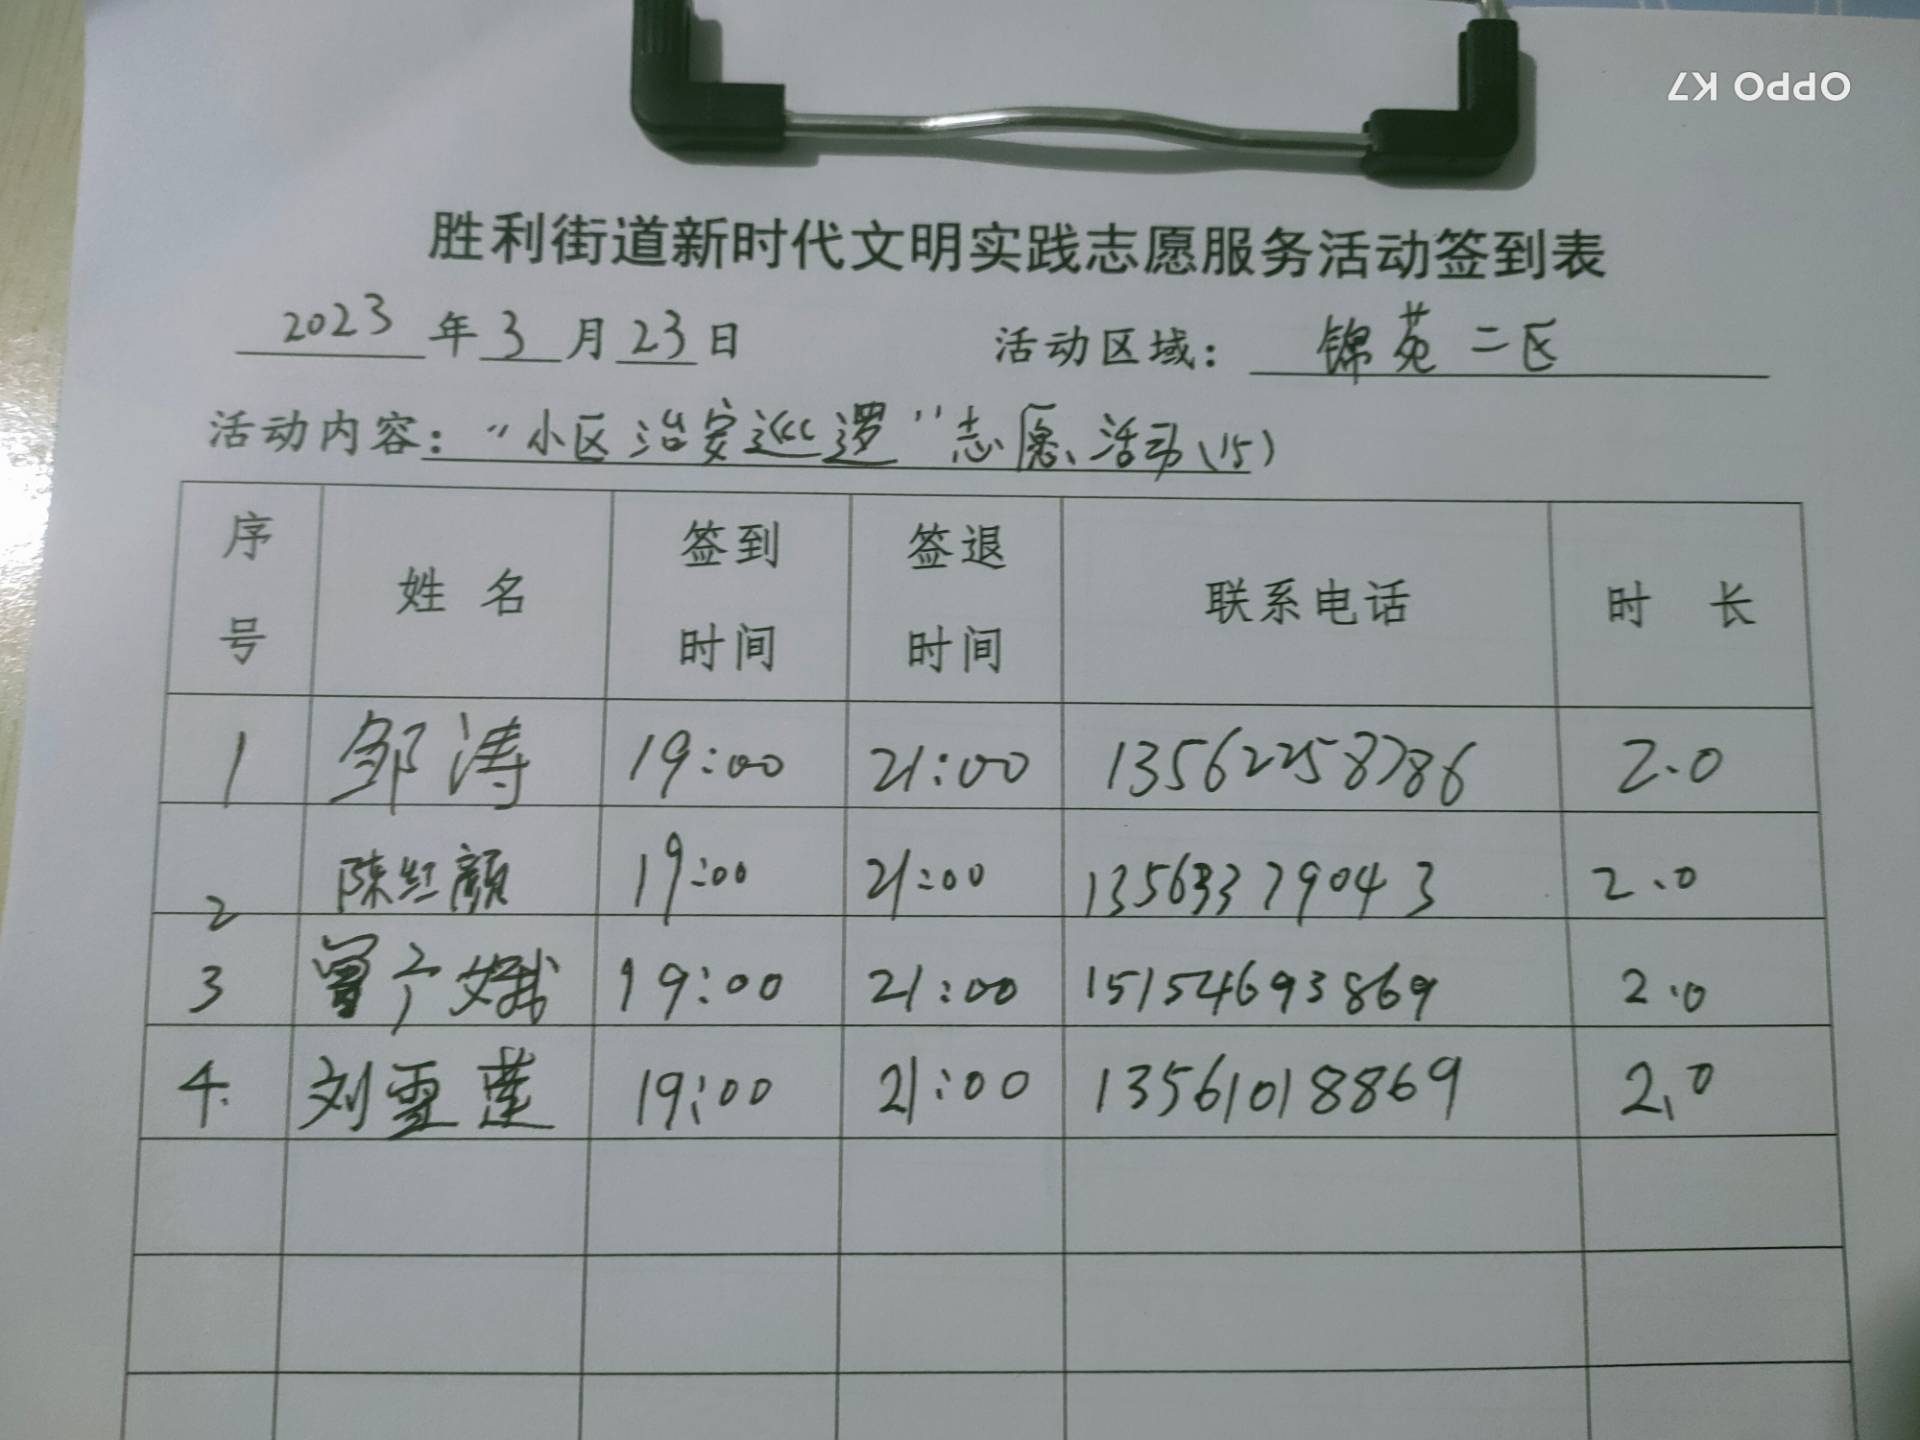 OPPO K7
胜利街道新时代文明实践志愿服务活动签到表
2023年3月23日 活动区域：锦苑二区
活动内容："小区治安巡逻"志愿活动(15)
序号 姓名 签到时间 签退时间 联系电话 时长
1 邹涛 19:00 21:00 13562258786 2.0
2 陈红颜 19:00 21:00 13563379043 2.0
3 曾广娥 19:00 21:00 15154693869 2.0
4. 刘雪莲 19:00 21:00 13561018869 2.0